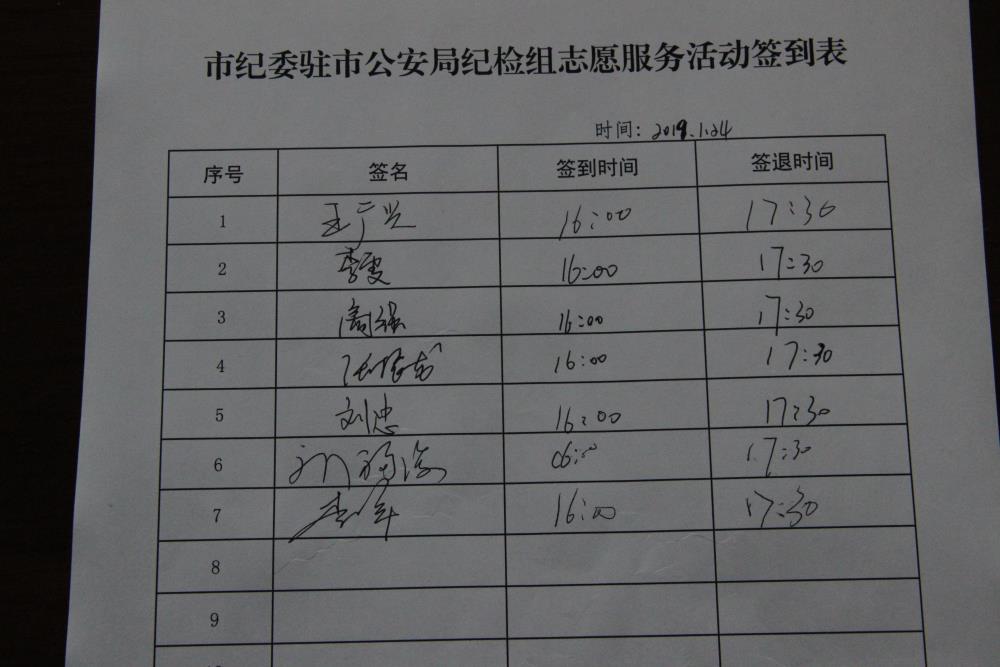 市纪委驻市公安局纪检组志愿服务活动签到表
时间：2019.1.24
序号 签名 签到时间 签退时间
1 王广兴 16:00 17:30
2 李雯 16:00 17:30
3 周强 16:00 17:30
4 16:00 17:30
5 刘忠 16:00 17:30
6 17:30
7 李军 16:00 17:30
8
9